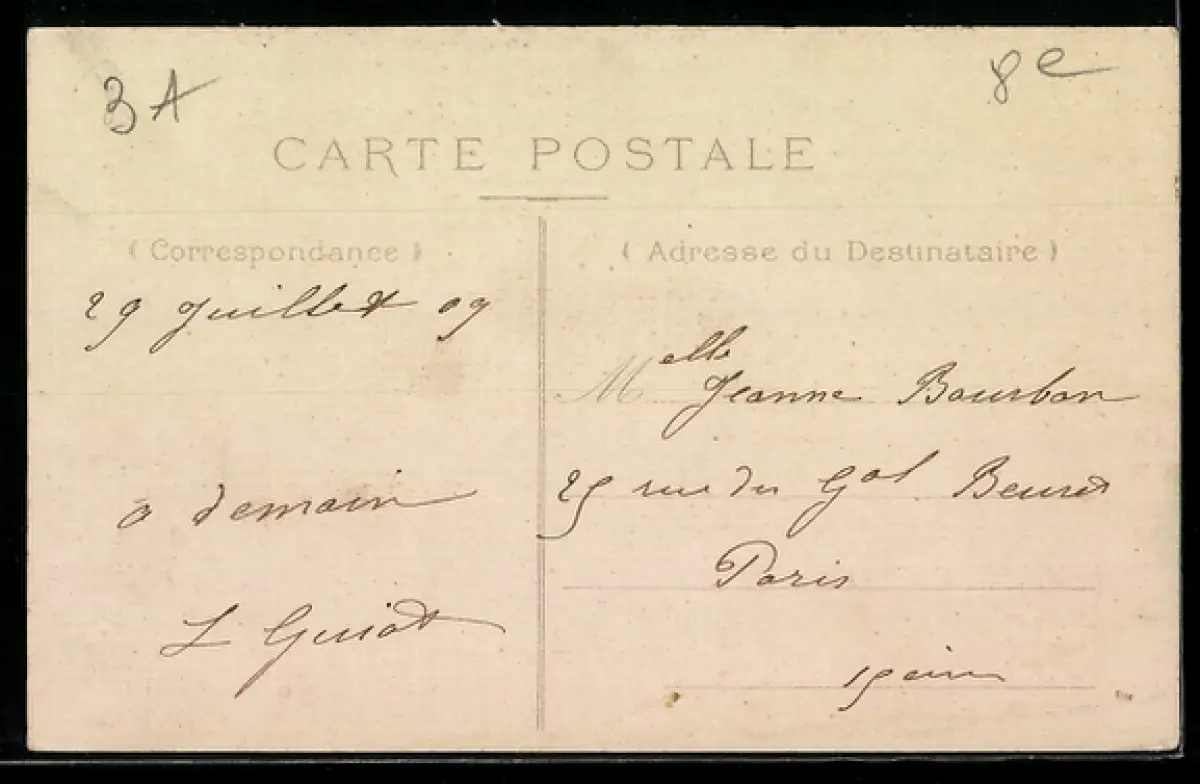 3A
8e
CARTE POSTALE
(Correspondance)
29 Juillet 09
à demain
L Guiot
(Adresse du Destinataire)
Melle
Jeanne Bourbon
25 rue du Gal Beuret
Paris
15eim